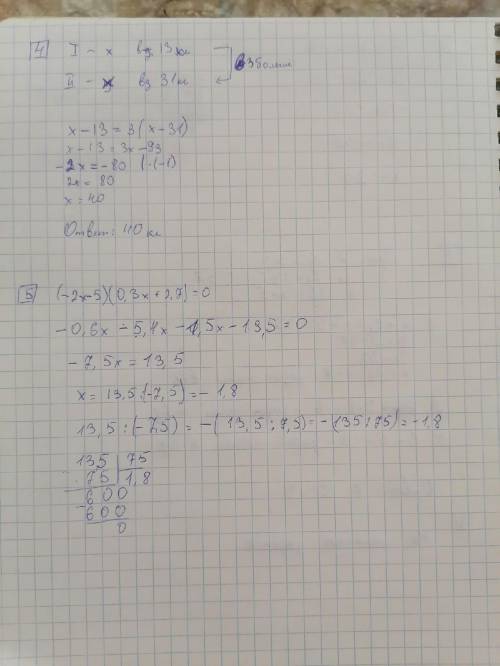 4 I - x вз 13 кг
II - x вз 31 кг
x-13=3(x-31)
x-13=3x-93
-2x=-80 |·(-1)
2x=80
x=40
Ответ: 40 кг
5 (-2x-5)(0,3x+2,7)=0
-0,6x-5,4x-1,5x-13,5=0
-7,5x=13,5
x=13,5:(-7,5)=-1,8
13,5:(-7,5)=-(13,5:7,5)=-(135:75)=-1,8
135 | 75
75 | 1,8
600
-600
0